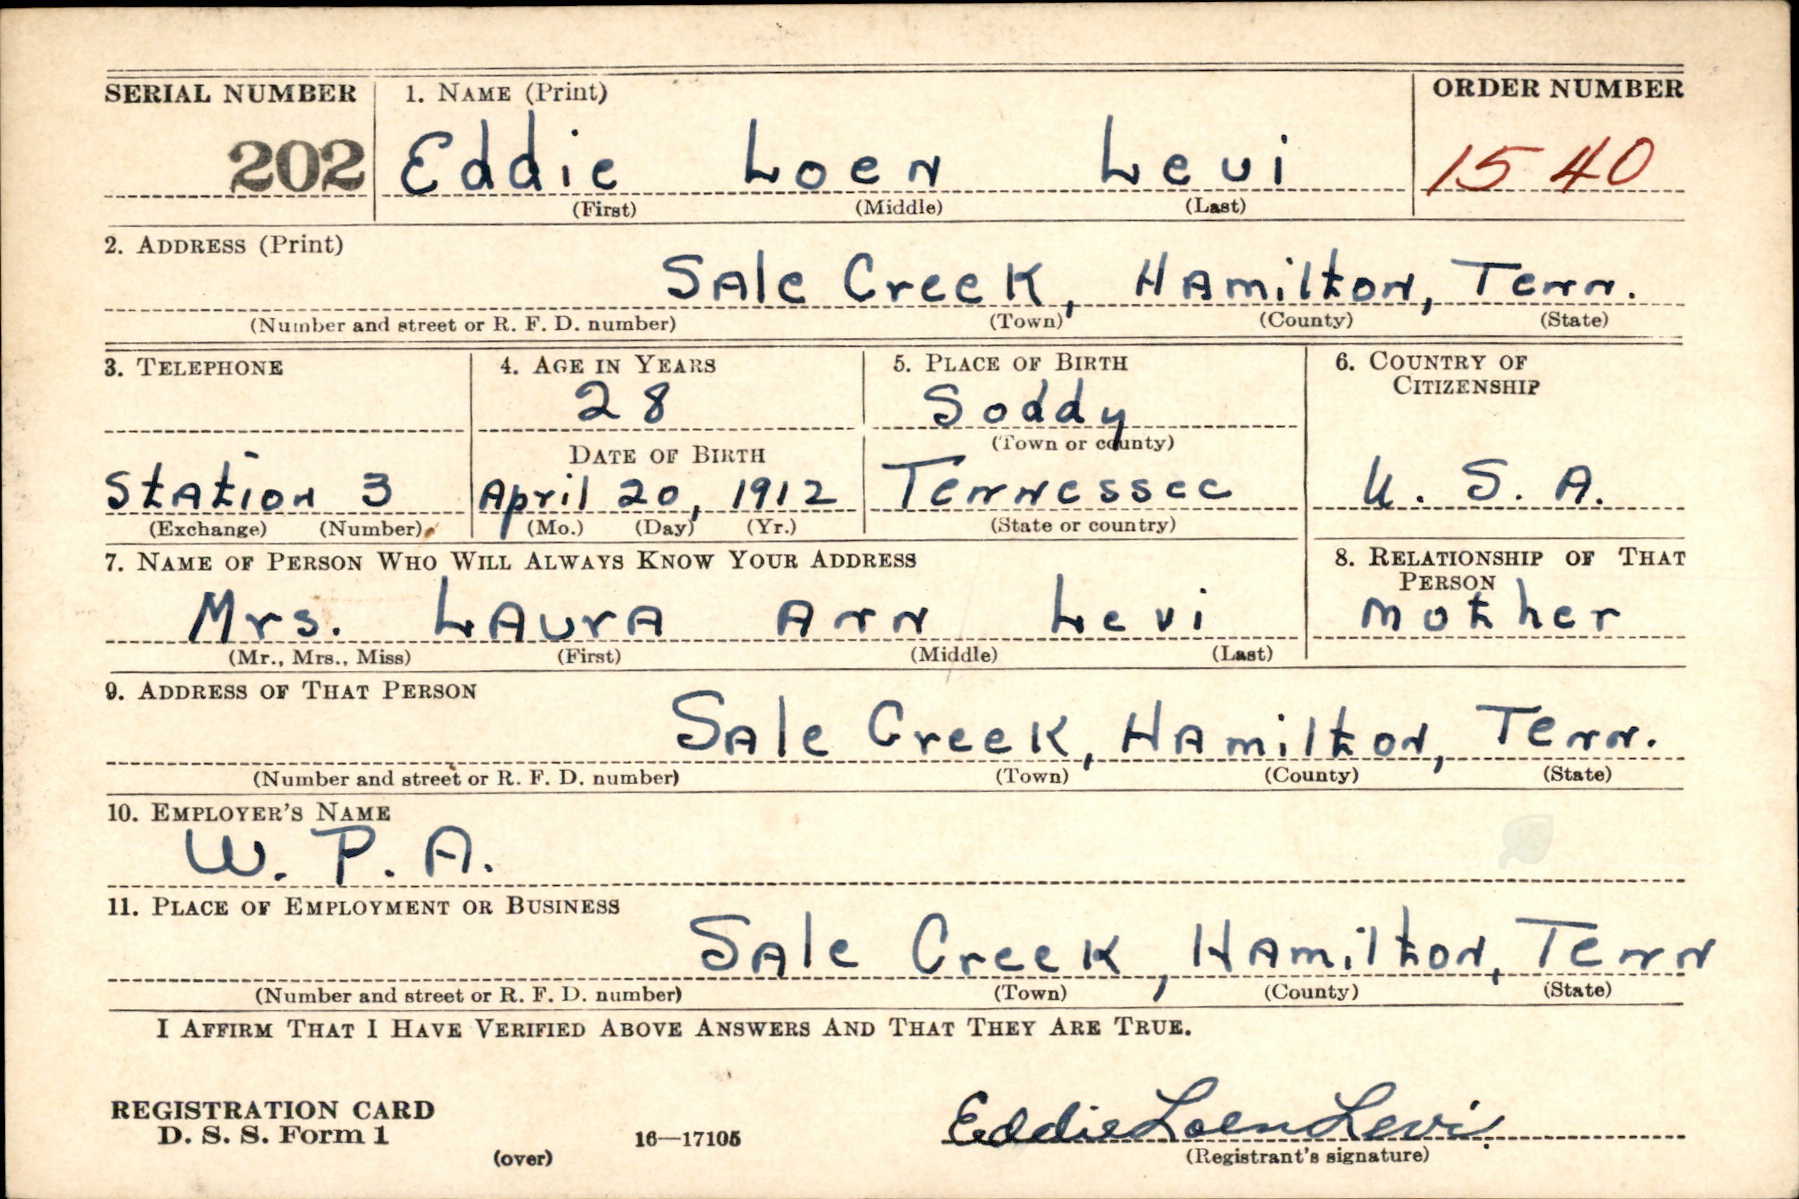 SERIAL NUMBER 1. NAME (Print) ORDER NUMBER
202 Eddie Loen Levi 1540
(First) (Middle) (Last)
2. ADDRESS (Print)
Sale Creek, Hamilton, Tenn.
(Number and street or R. F. D. number) (Town) (County) (State)
3. TELEPHONE 4. AGE IN YEARS 5. PLACE OF BIRTH 6. COUNTRY OF
CITIZENSHIP
28 Soddy
(Town or county)
DATE OF BIRTH
Station 3 April 20, 1912 Tennessee U. S. A.
(Exchange) (Number) (Mo.) (Day) (Yr.) (State or country)
7. NAME OF PERSON WHO WILL ALWAYS KNOW YOUR ADDRESS 8. RELATIONSHIP OF THAT
PERSON
Mrs. Laura Ann Levi mother
(Mr., Mrs., Miss) (First) (Middle) (Last)
9. ADDRESS OF THAT PERSON
Sale Creek, Hamilton, Tenn.
(Number and street or R. F. D. number) (Town) (County) (State)
10. EMPLOYER'S NAME
W. P. A.
11. PLACE OF EMPLOYMENT OR BUSINESS
Sale Creek, Hamilton, Tenn
(Number and street or R. F. D. number) (Town) (County) (State)
I AFFIRM THAT I HAVE VERIFIED ABOVE ANSWERS AND THAT THEY ARE TRUE.
REGISTRATION CARD
D. S. S. Form 1 16—17105 Eddie Loen Levi.
(over) (Registrant's signature)